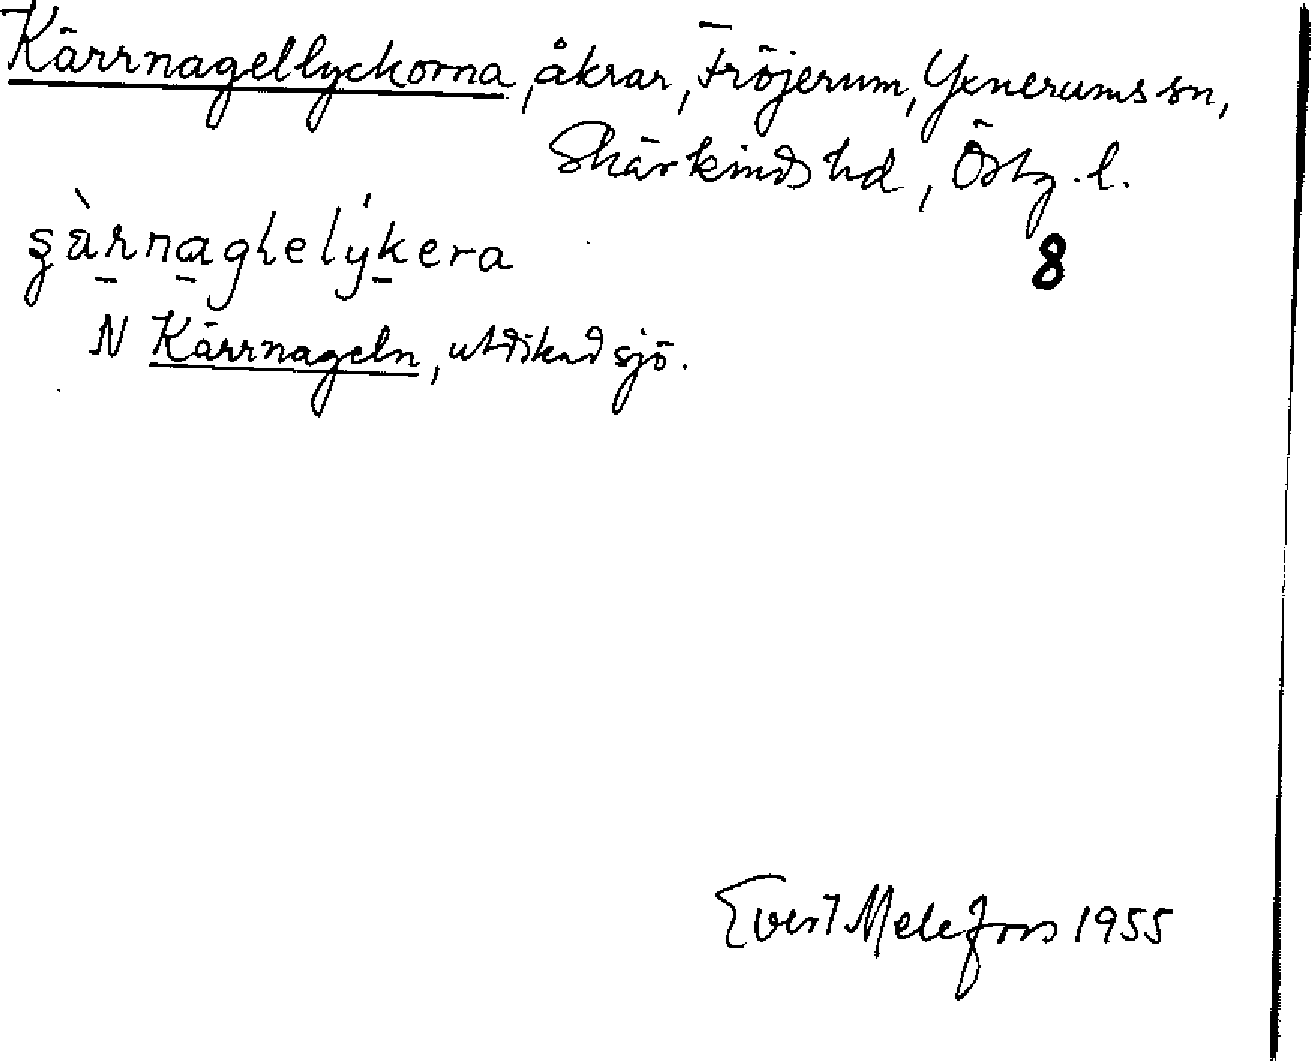 Kärrnagellyckorna, åkrar, Fröjerum, Yxnerums sn,
Skärkinds hd, Östg. l.
8
N Kärrnageln, utdikad sjö.
Evert Melefors 1955